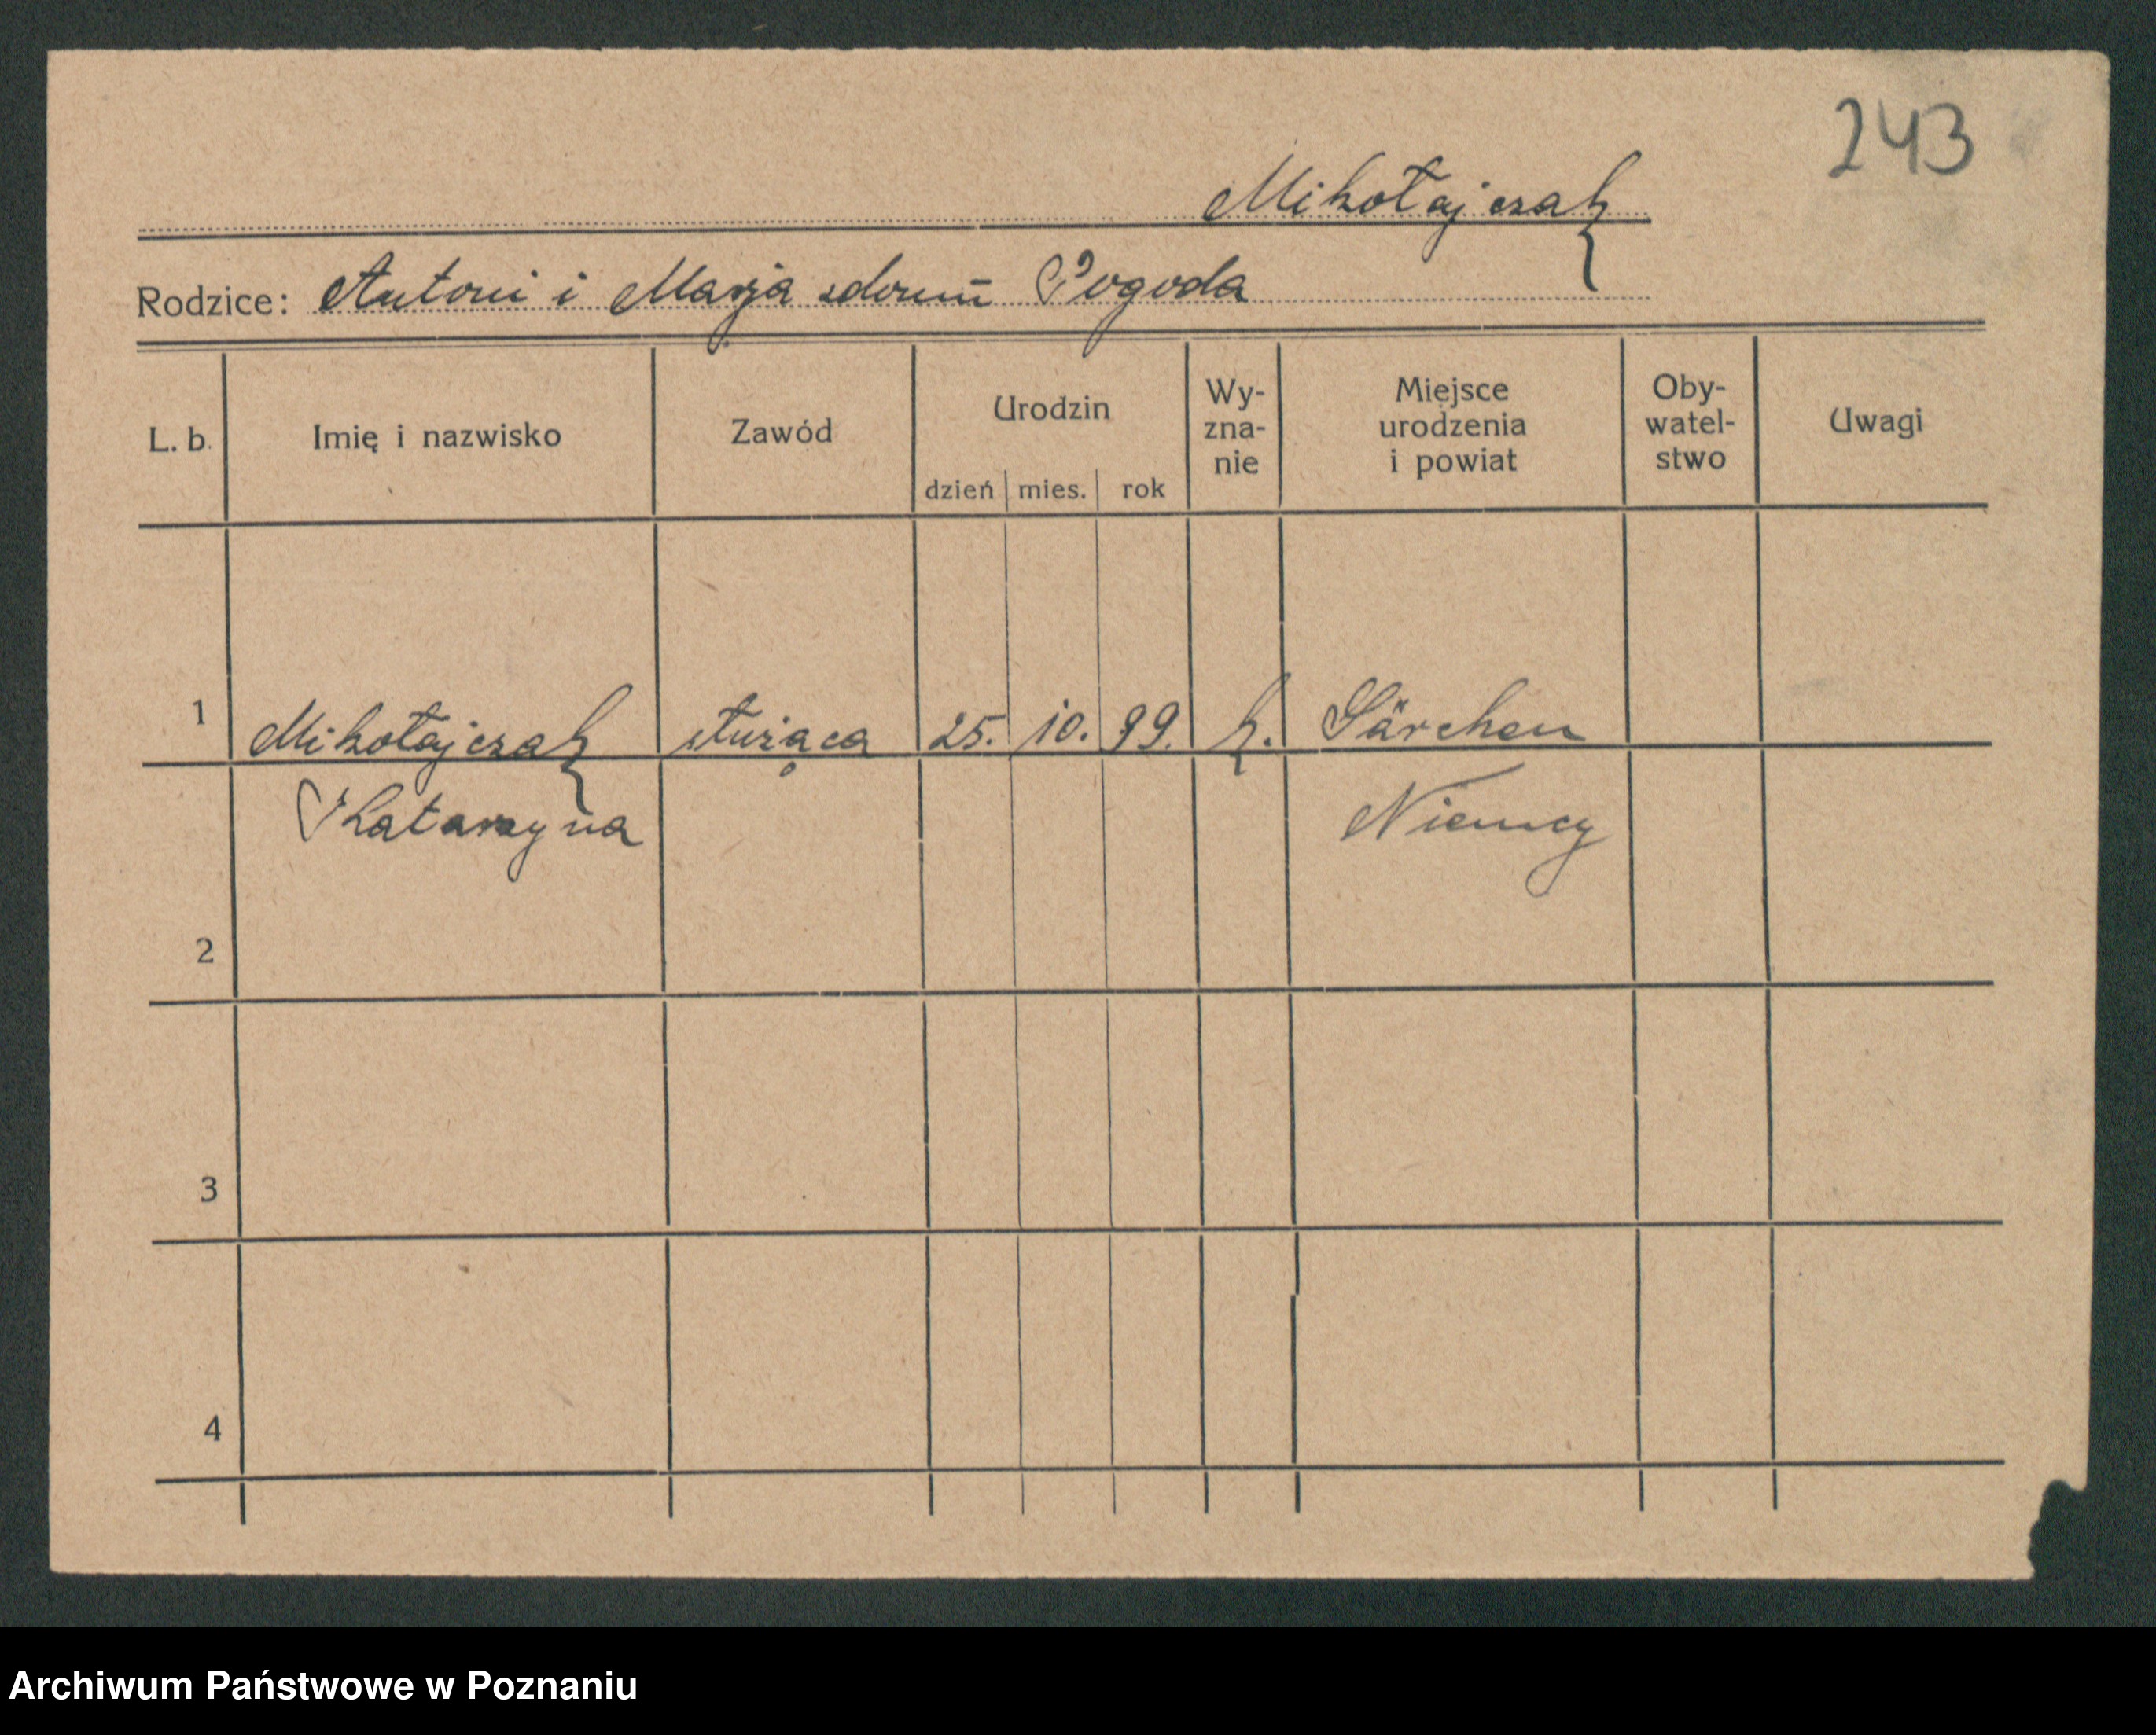 243
Mikołajczak
Rodzice: Antoni i Marja zdomu Pogoda
L. b. Imię i nazwisko Zawód Urodzin dzień mies. rok Wy-zna-nie Miejsce urodzenia i powiat Oby-watel-stwo Uwagi
1 Mikołajczak służąca 25. 10. 99. k. Särchen
Katarzyna Niemcy
2
3
4
Archiwum Państwowe w Poznaniu